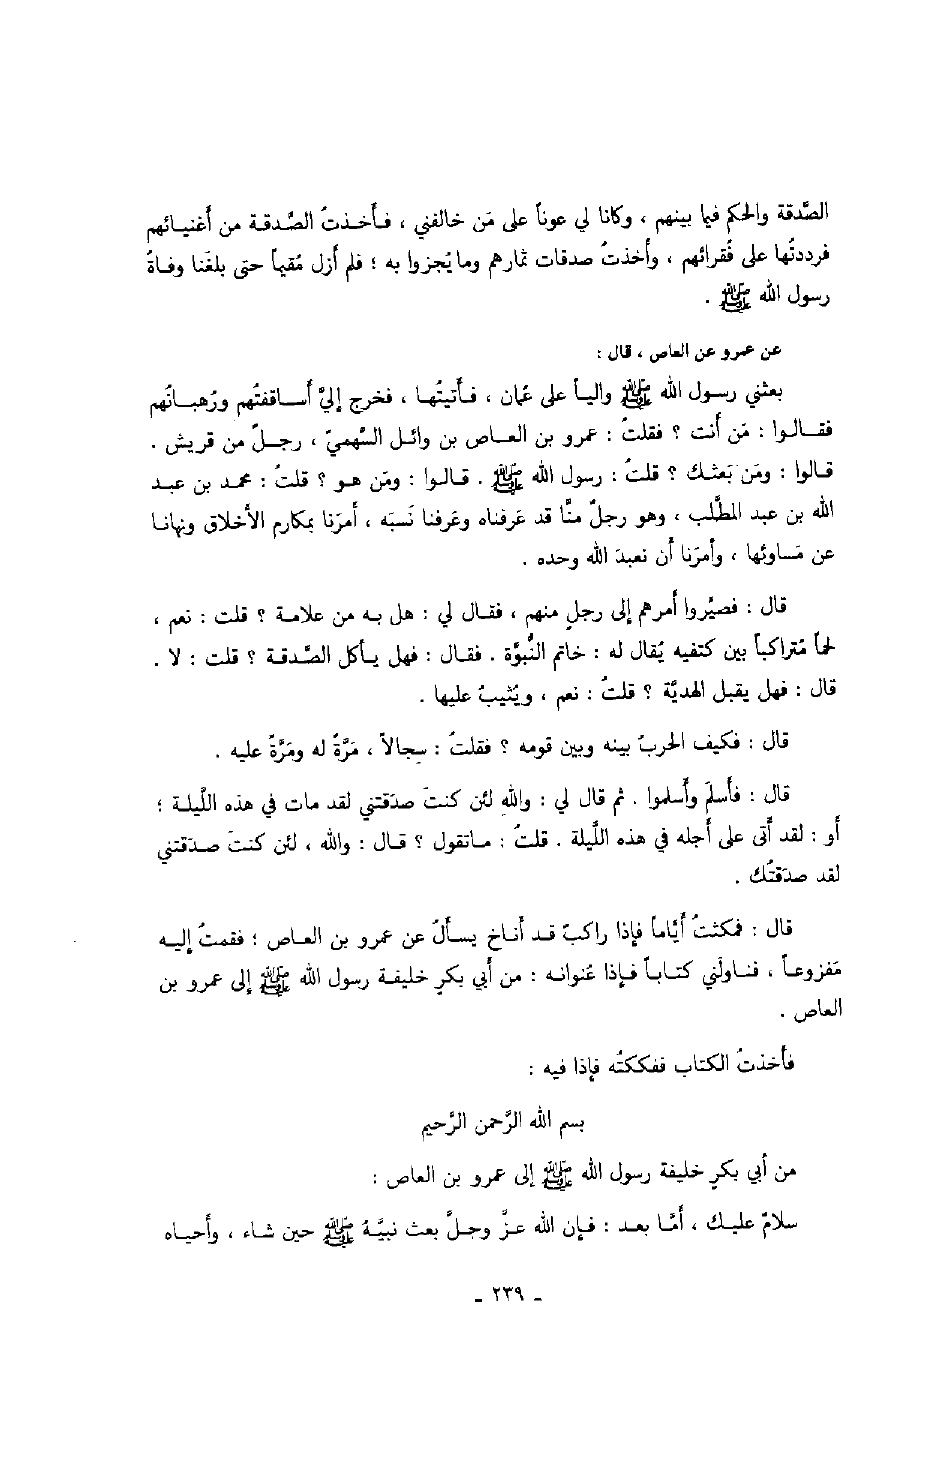 الصَّدقة والحكم فيما بينهم ، وكانا لي عوناً على مَن خالفني ، فأخذتُ الصَّدقة من أغنيائهم
فرددتُها على فُقرائهم ، وأخذتُ صدقات ثمارهم وما يُجزوا به ؛ فلم أزل مُقيماً حتى بلغَنا وفاةُ
رسول الله ﷺ .
عن عمرو عن العاص ، قال :
بعثني رسول الله ﷺ والياً على عُمان ، فأتيتُها ، فخرج إليَّ أساقفتُهم ورُهبانُهم
فقالوا : مَن أنت ؟ فقلتُ : عمرو بن العاص بن وائل السَّهميّ ، رجلٌ من قريش .
قالوا : ومَن بَعثك ؟ قلتُ : رسول الله ﷺ . قالوا : ومَن هو ؟ قلتُ : محمد بن عبد
الله بن عبد المطَّلب ، وهو رجلٌ منَّا قد عَرفناه وعَرفنا نَسبَه ، أمرَنا بمكارم الأخلاق ونهانا
عن مَساوئها ، وأمرَنا أن نعبدَ الله وحده .
قال : فصيَّروا أمرهم إلى رجلٍ منهم ، فقال لي : هل به من علامة ؟ قلت : نعم ،
لحماً مُتراكباً بين كتفيه يُقال له : خاتم النُّبوَّة . فقال : فهل يأكل الصَّدقة ؟ قلت : لا .
قال : فهل يقبل الهديَّة ؟ قلتُ : نعم ، ويُثيبُ عليها .
قال : فكيف الحربُ بينه وبين قومه ؟ فقلتُ : سِجالاً ، مَرَّةً له ومَرَّةً عليه .
قال : فأسلَم وأسلموا . ثم قال لي : والله لئن كنتَ صدَقتني لقد مات في هذه اللَّيلة ؛
أو : لقد أتى على أجله في هذه اللَّيلة . قلتُ : ماتقول ؟ قال : والله ، لئن كنتَ صدَقتني
لقد صدَقتُك .
قال : فمكثتُ أيَّاماً فإذا راكبٌ قد أناخ يسألُ عن عمرو بن العاص ؛ فقمتُ إليه
مَفزوعاً ، فناولَني كتاباً فإذا عُنوانه : من أبي بكرٍ خليفة رسول الله ﷺ إلى عمرو بن
العاص .
فأخذتُ الكتاب ففككتُه فإذا فيه :
بسم الله الرَّحمن الرَّحيم
من أبي بكرٍ خليفة رسول الله ﷺ إلى عمرو بن العاص :
سلامٌ عليك ، أمَّا بعد : فإن الله عزَّ وجلَّ بعث نبيَّهُ ﷺ حين شاء ، وأحياه
- ٢٣٩ -